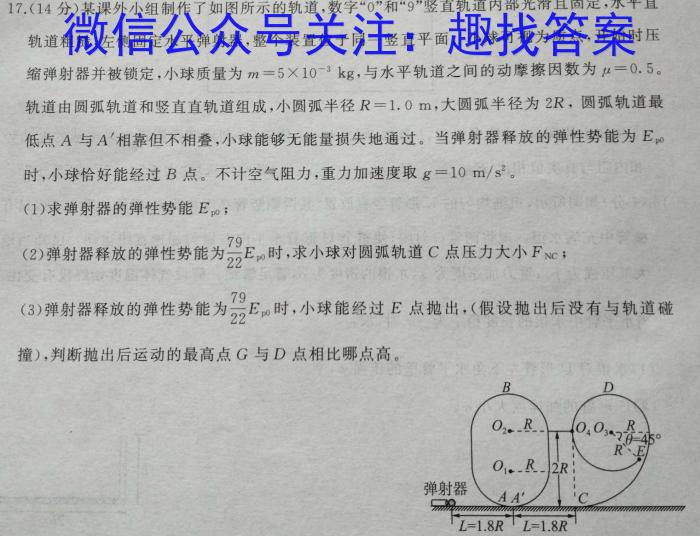 17.(14分)某课外小组制作了如图所示的轨道,数字“0”和“9”竖直轨道内部光滑且固定,水平直
微信公众号关注：趣找答案
缩弹射器并被锁定,小球质量为m=5×10⁻³ kg,与水平轨道之间的动摩擦因数为μ=0.5。
轨道由圆弧轨道和竖直直轨道组成,小圆弧半径R=1.0 m,大圆弧半径为2R，圆弧轨道最
低点A与A′相靠但不相叠,小球能够无能量损失地通过。当弹射器释放的弹性势能为Eₚ₀
时,小球恰好能经过B点。不计空气阻力,重力加速度取g=10 m/s²。
(1)求弹射器的弹性势能Eₚ₀；
(2)弹射器释放的弹性势能为79/22Eₚ₀时,求小球对圆弧轨道C点压力大小F_NC；
(3)弹射器释放的弹性势能为79/22Eₚ₀时,小球能经过E点抛出,(假设抛出后没有与轨道碰
撞),判断抛出后运动的最高点G与D点相比哪点高。
B
D
O₂ R
O₄ O₃ R
θ=45°
R E
O₁ R 2R
弹射器
A A′ C
L=1.8R L=1.8R